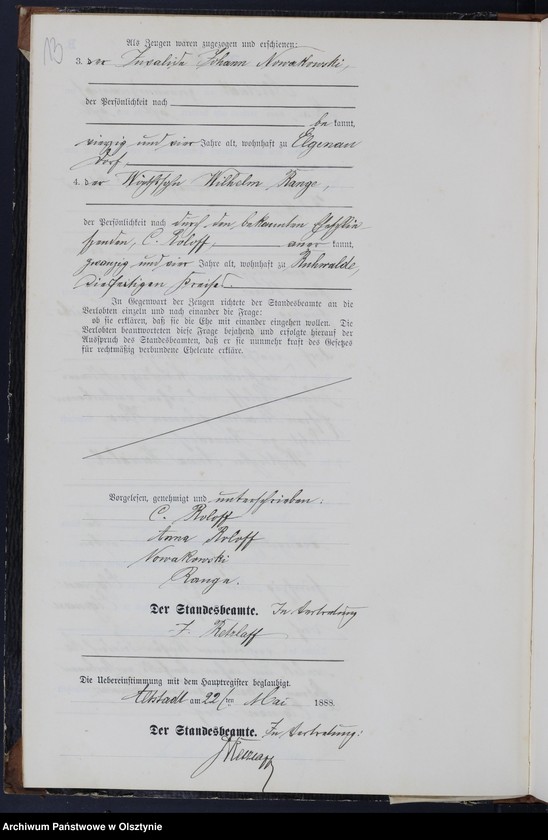 13
Als Zeugen waren zugezogen und erschienen:
3. der Invalide Johann Nowakowski,
der Persönlichkeit nach
be kannt,
vierzig und vier Jahre alt, wohnhaft zu Elgenau
Dorf
4. der Wirthssohn Wilhelm Range,
der Persönlichkeit nach durch den bekannten Eheschlie-
ßenden, C. Roloff, aner kannt,
zwanzig und vier Jahre alt, wohnhaft zu Ruhwalde,
diesseitigen Kreises.
In Gegenwart der Zeugen richtete der Standesbeamte an die
Verlobten einzeln und nach einander die Frage:
ob sie erklären, daß sie die Ehe mit einander eingehen wollen. Die
Verlobten beantworteten diese Frage bejahend und erfolgte hierauf der
Ausspruch des Standesbeamten, daß er sie nunmehr kraft des Gesetzes
für rechtmäßig verbundene Eheleute erkläre.
Vorgelesen, genehmigt und unterschrieben:
C. Roloff
Anna Roloff
Nowakowski
Range.
Der Standesbeamte. In Vertretung
F. Retzlaff
Die Uebereinstimmung mit dem Hauptregister beglaubigt.
Altstadt am 22ten Mai 1888.
Der Standesbeamte. In Vertretung:
FRetzlaff
Archiwum Państwowe w Olsztynie